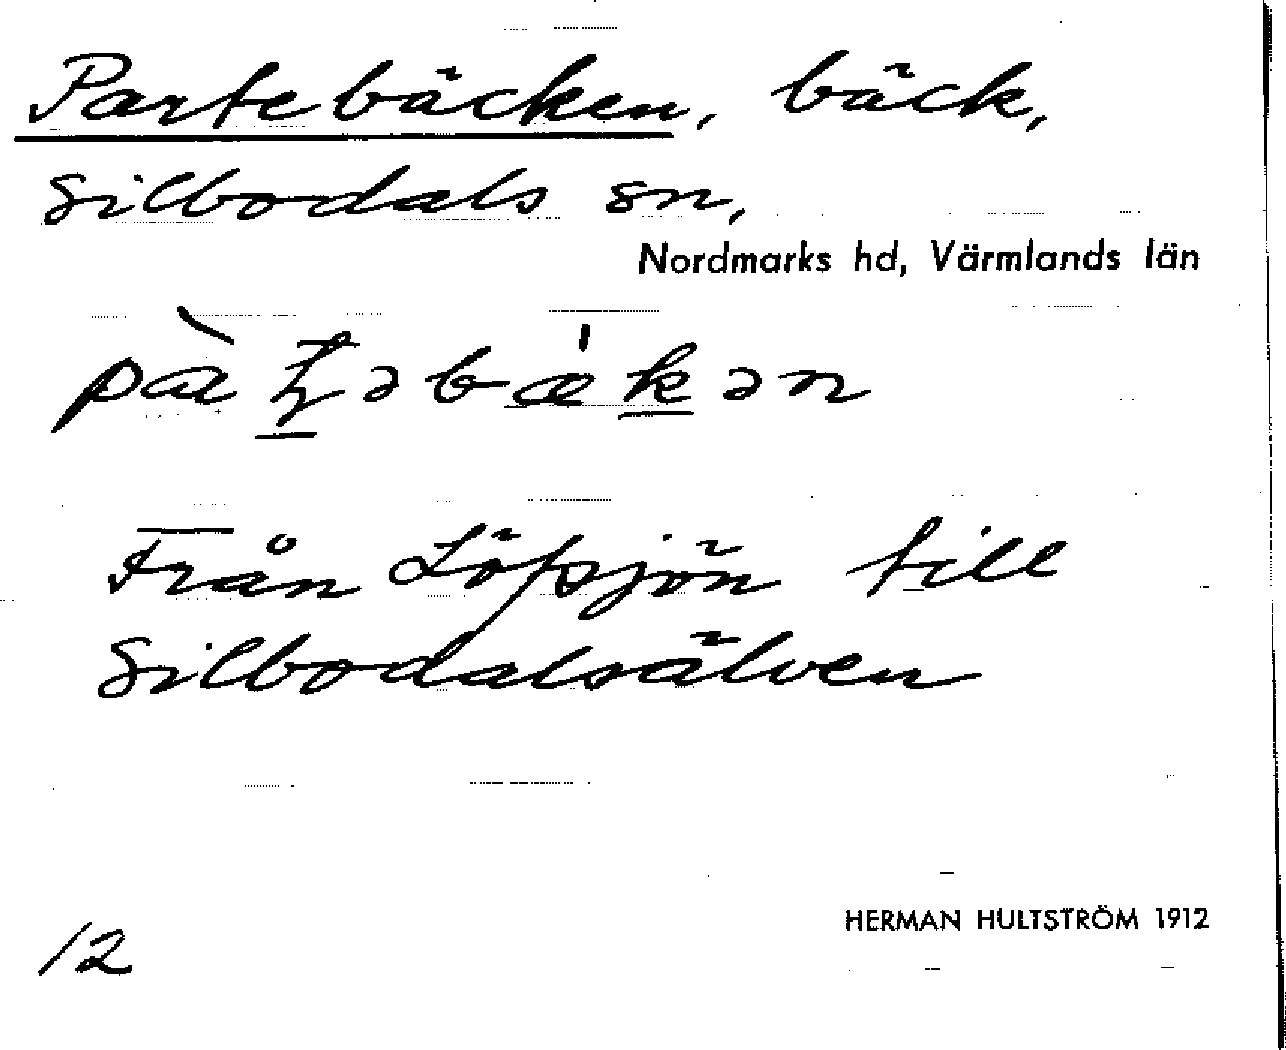 Partebäcken, bäck,
Silbodals sn,
Nordmarks hd, Värmlands län
pàʈəbǽkən
Från Löpsjön till
Silbodalsälven
HERMAN HULTSTRÖM 1912
12